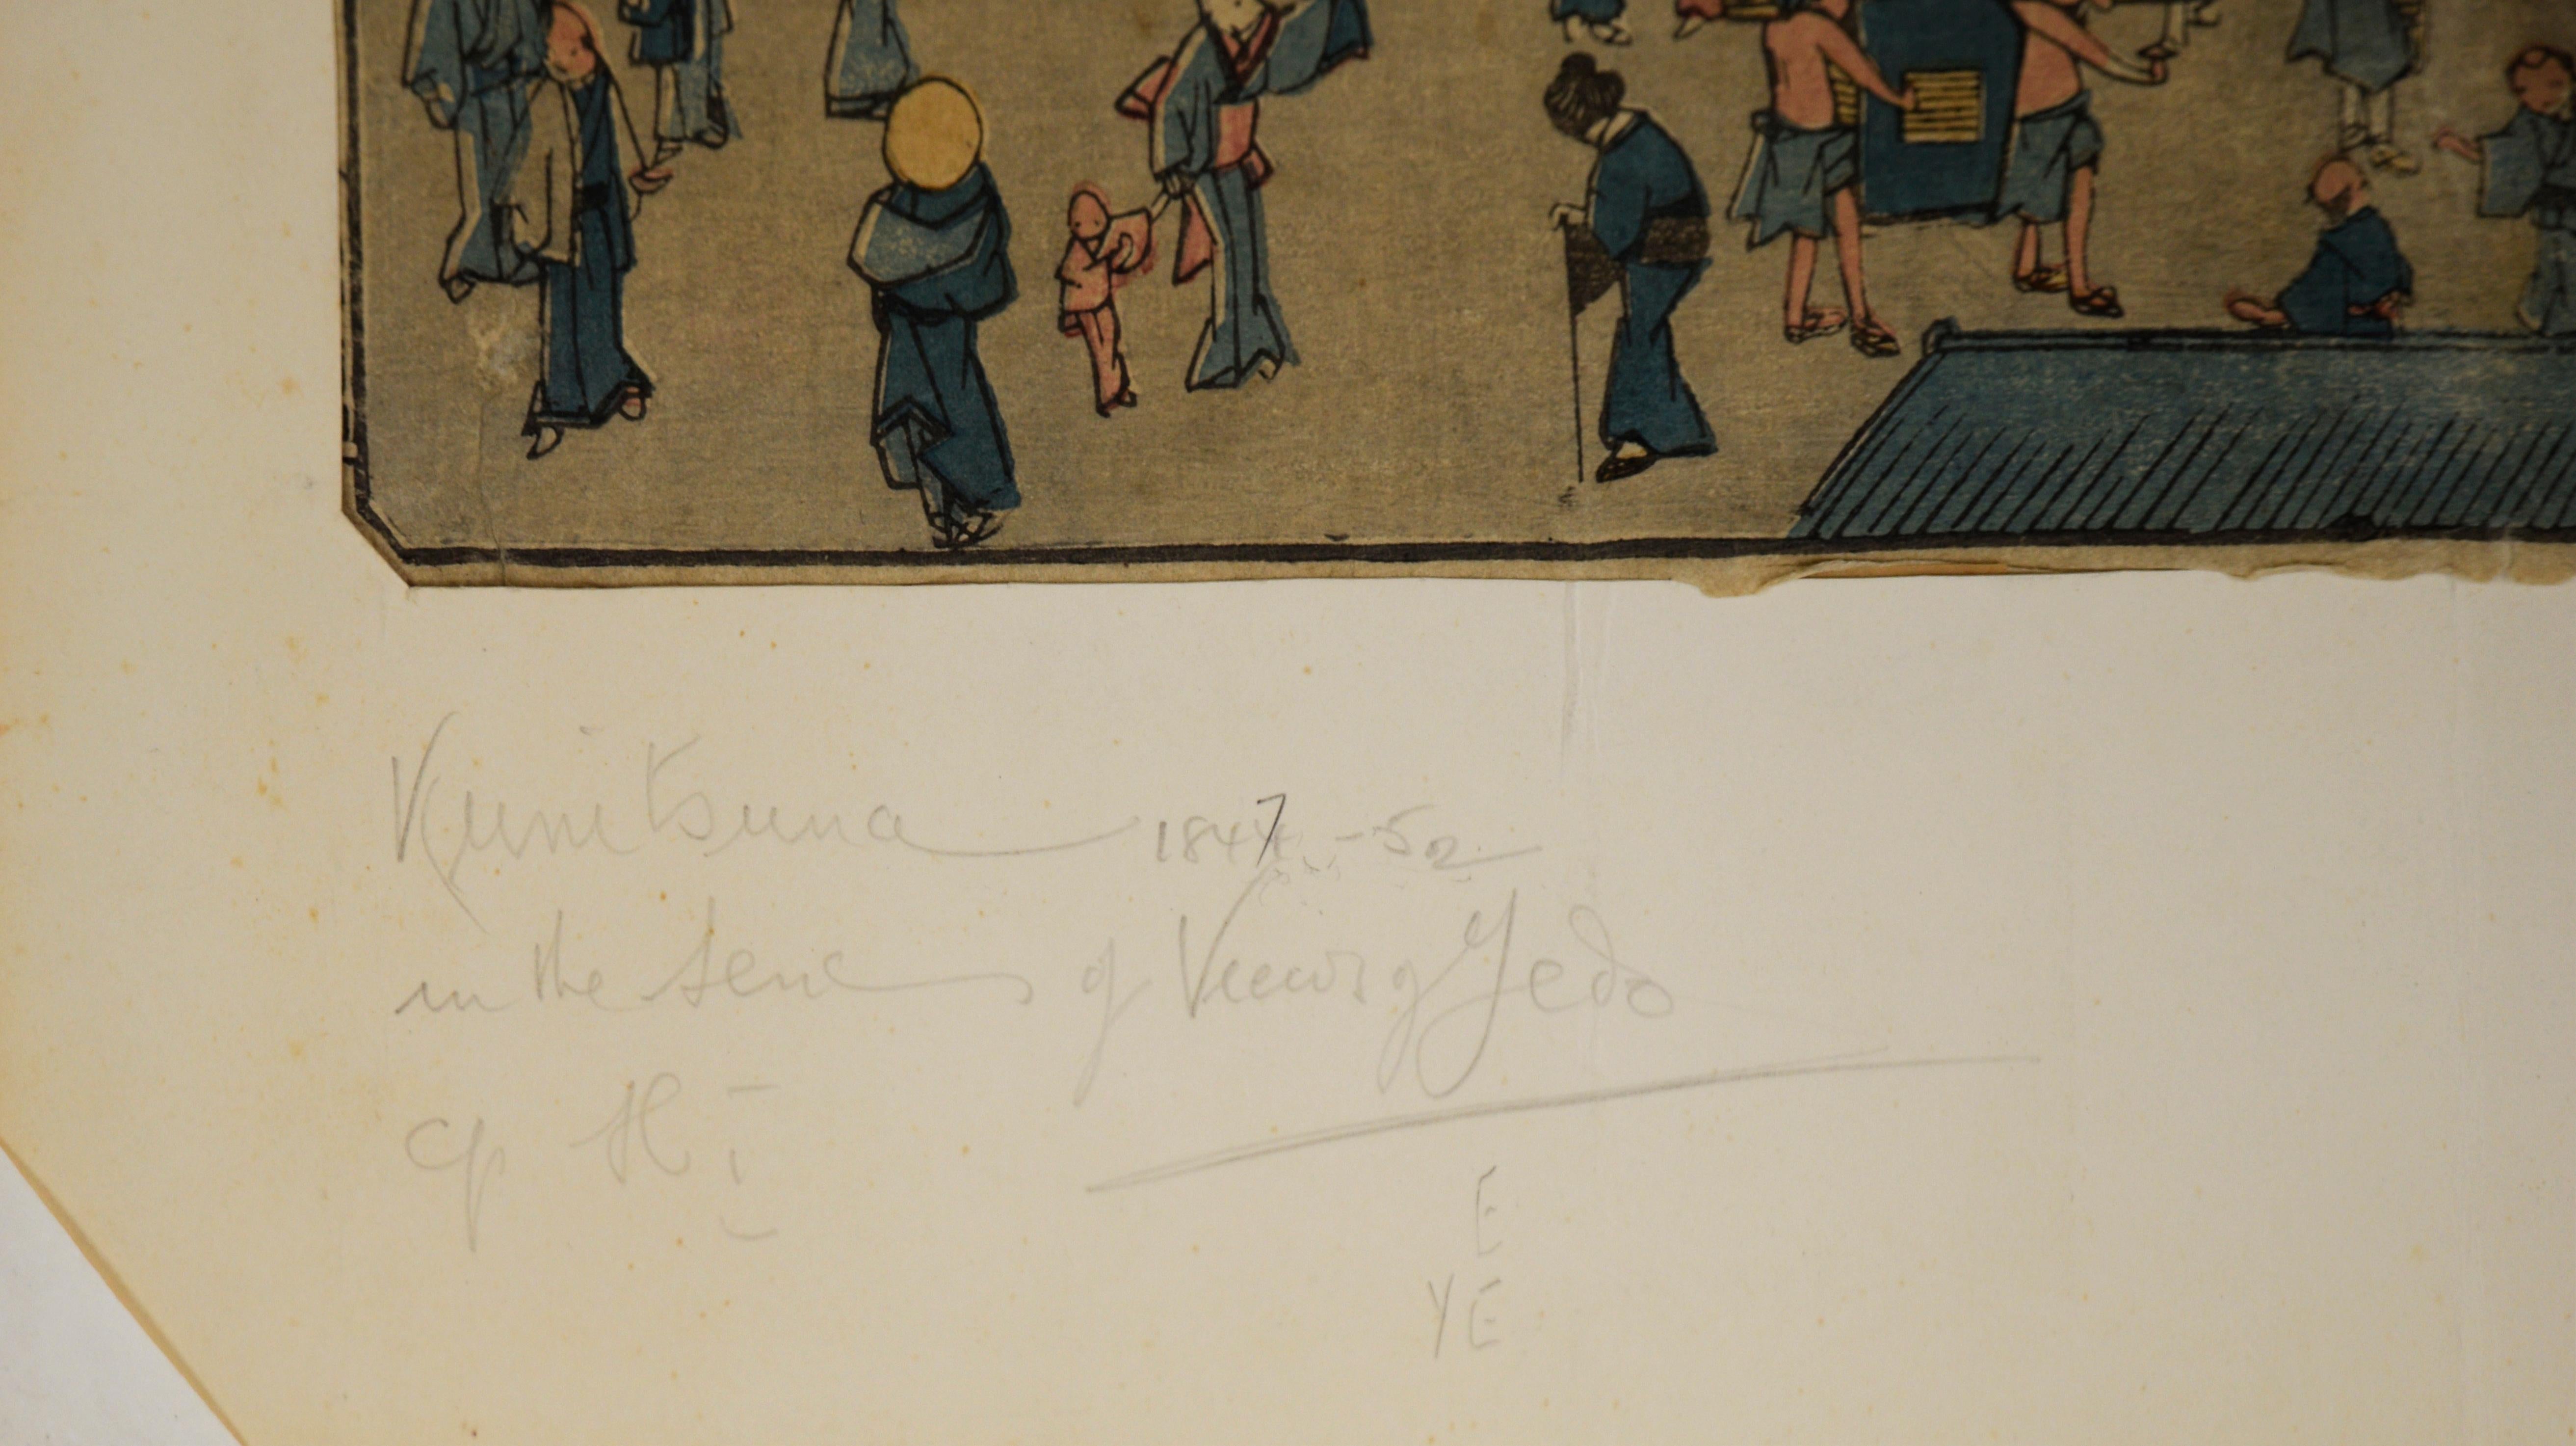 Kunitsuna 1847-52
in the series of Views of Yedo
cf H I
E
YE